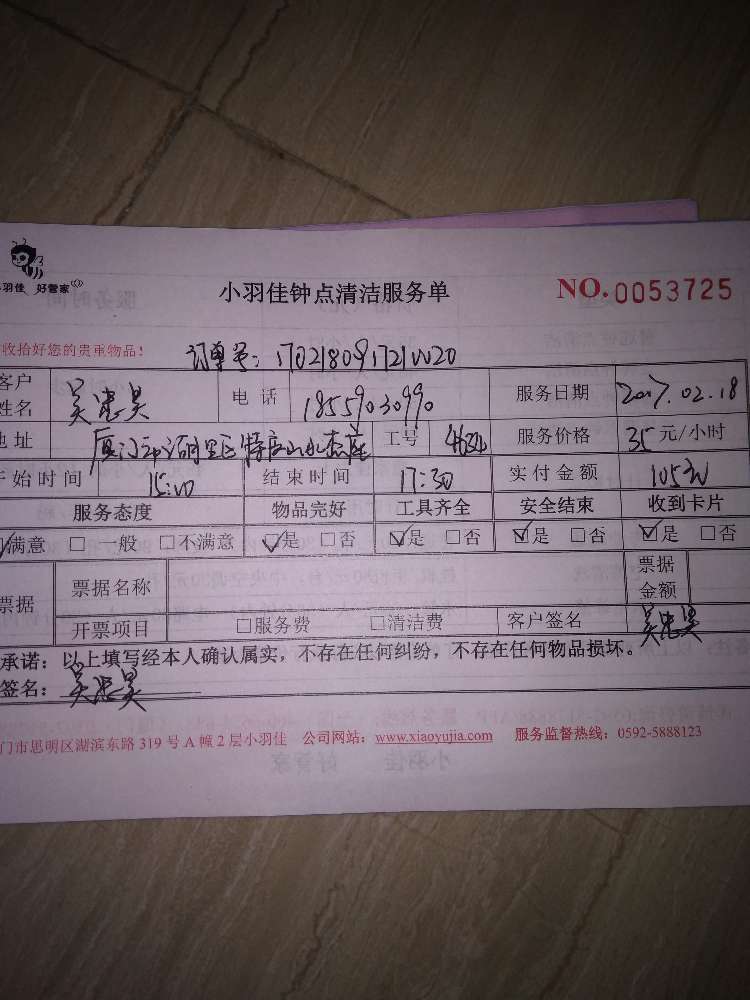 羽佳 好管家
小羽佳钟点清洁服务单
NO.0053725
收拾好您的贵重物品!
订单号:
客户姓名 吴忠昊 电话 18559030990 服务日期 2017.02.18
地址 厦门市湖里区 工号 服务价格 35元/小时
开始时间 15:00 结束时间 17:30 实付金额 105元
服务态度 物品完好 工具齐全 安全结束 收到卡片
☑满意 □一般 □不满意 ☑是 □否 ☑是 □否 ☑是 □否 ☑是 □否
票据 票据名称 票据金额
开票项目 □服务费 □清洁费 客户签名 吴忠昊
承诺:以上填写经本人确认属实,不存在任何纠纷,不存在任何物品损坏。
签名:吴忠昊
门市思明区湖滨东路 319 号 A 幢 2 层小羽佳 公司网站:www.xiaoyujia.com 服务监督热线:0592-5888123